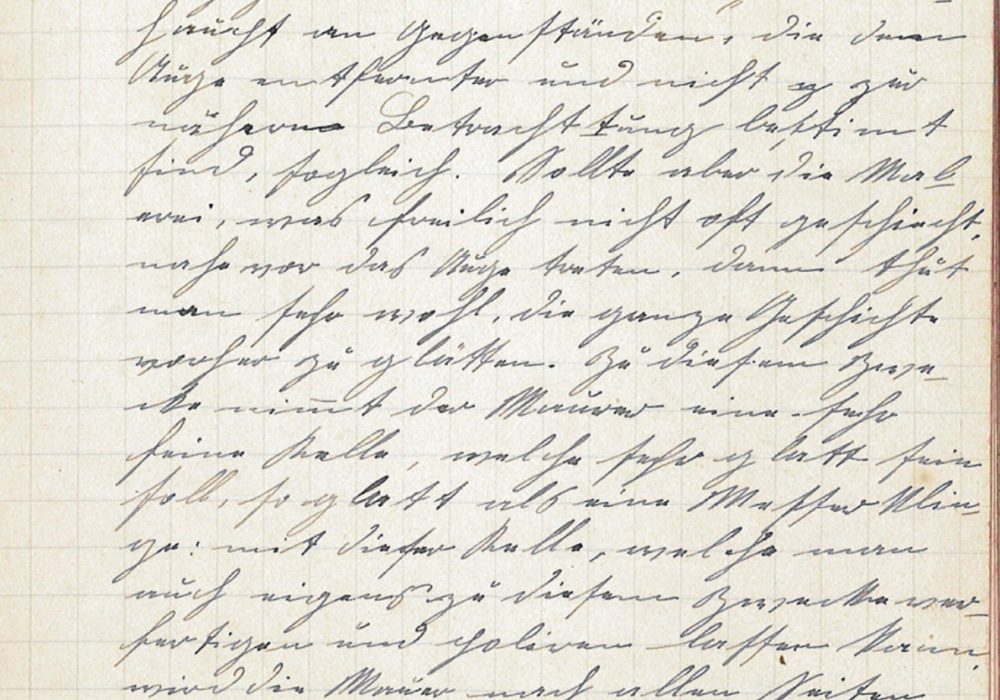 haucht an Gegenständen, die dem
Auge entfernter und nicht zur
nähern Betrachttung bestimt
sind, sogleich. Sollte aber die Mal-
erei, was freilich nicht oft geschiecht,
nahe vor das Auge treten, dann thut
man sehr wohl, die ganze Geschichte
vorher zu glätten. Zu diesem Zwe-
cke nim̄t der Maurer eine sehr
feine Kelle, welche sehr glatt sein
soll, so glatt als eine Messer Klin-
ge: mit dieser Kelle, welche man
auch eigens zu diesem Zwecke ver-
fertigen und poliren lassen kann,
wird die Mauer nach allen Seiten